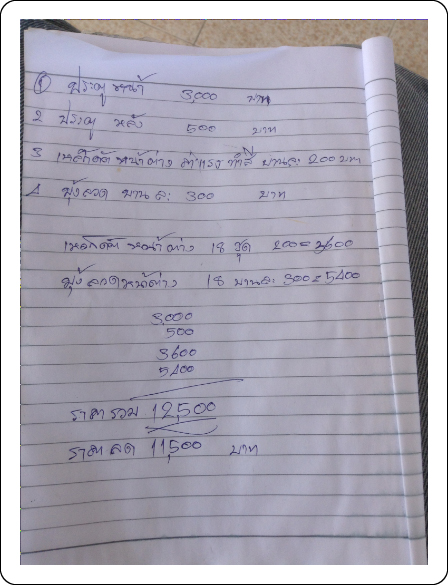 ① ประตูหน้า 3,000 บาท
2 ประตู หลัง 500 บาท
3 เหล็กดัด หน้าต่าง ค่าแรง ทำสี บานละ 200 บาท
4 มุ้งลวด บานละ 300 บาท
เหล็กดัด หน้าต่าง 18 ชุด 200 = 3600
มุ้งลวดหน้าต่าง 18 บานละ 300 = 5400
3,000
500
3600
5400
ราคารวม 12,500
ราคาลด 11,500 บาท